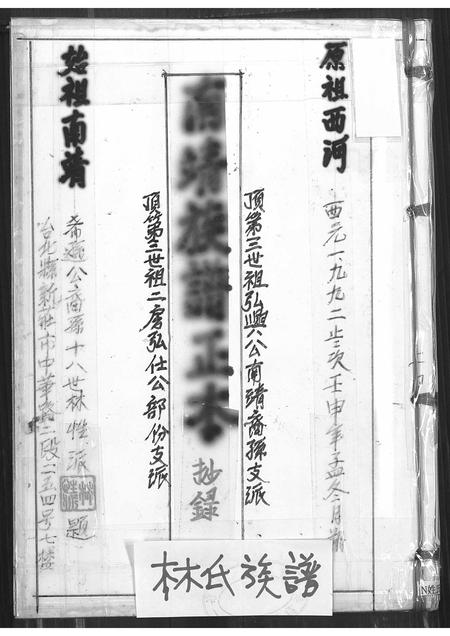 原祖西河
西元一九九二歲次壬申年孟冬月
頂第三世祖弘興公南靖裔孫支派
南靖族譜正本
抄錄
頂第三世祖二房弘仕公部份支派
始祖南靖
希遜公裔孫十八世林性派 題
台北縣新莊市中華路二段二五四号七楼
林氏族譜
N姓